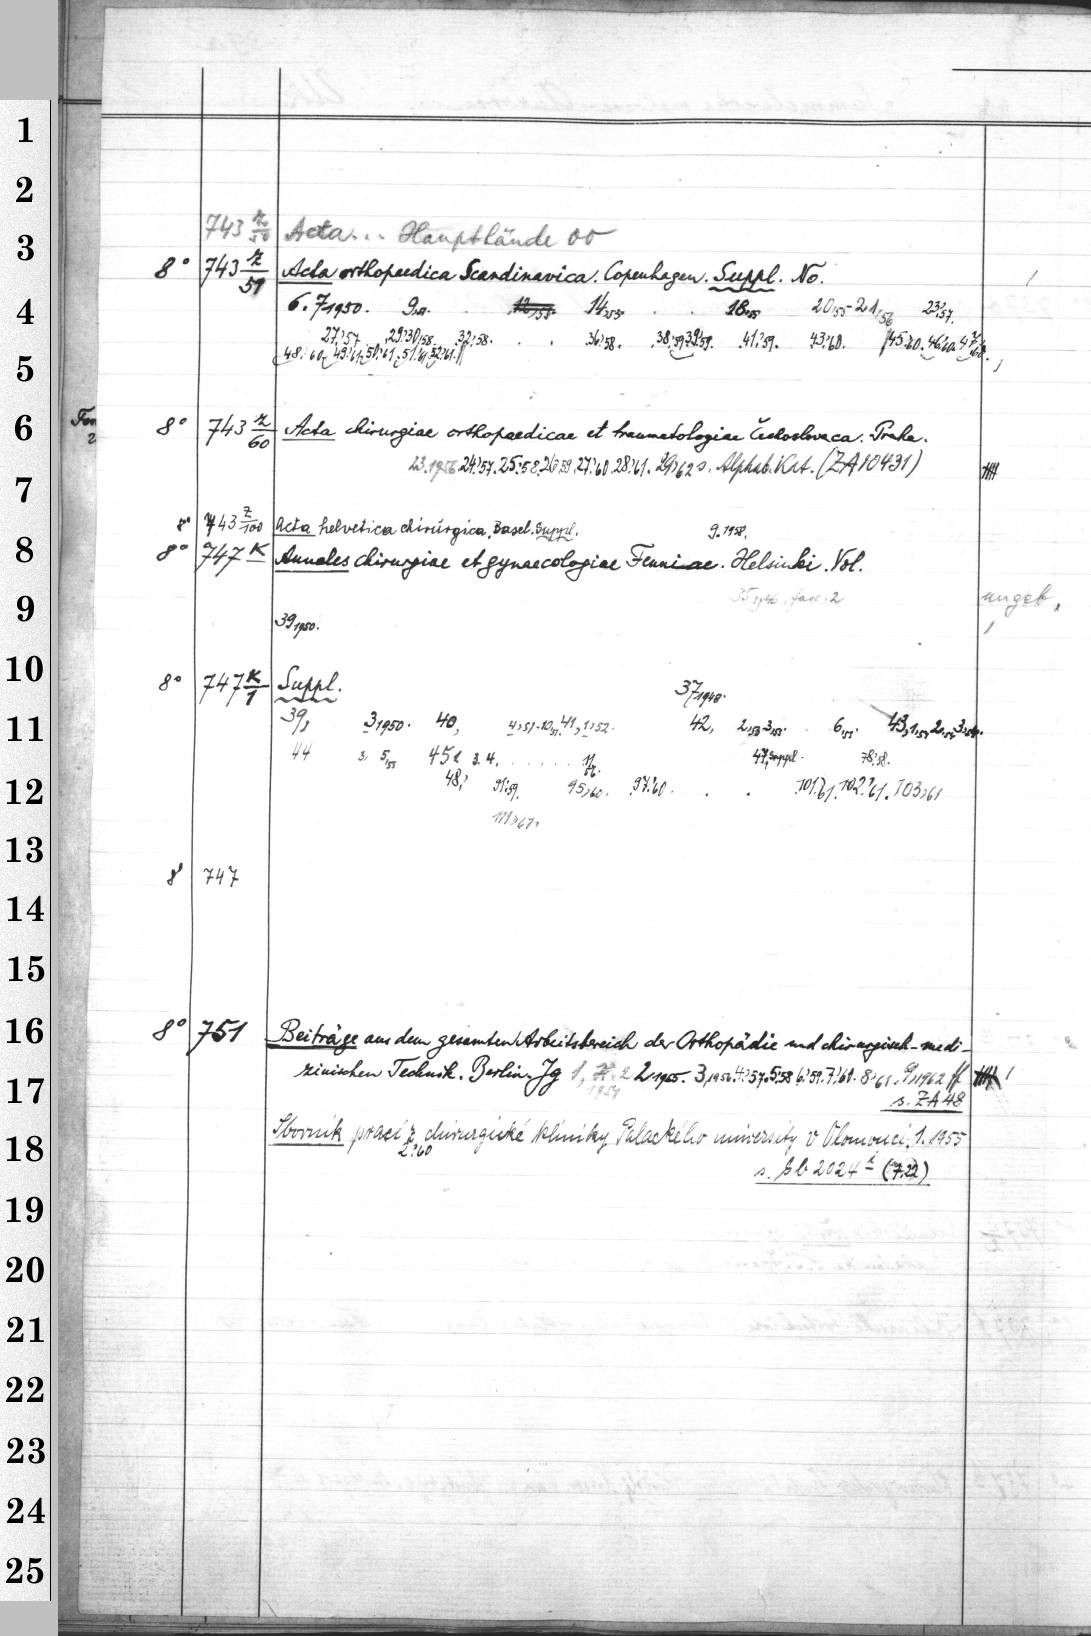 743 z/50 Acta... Hauptbände 00
8° 743 z/59 Acta orthopaedica Scandinavica. Copenhagen. Suppl. No.
6. 7 1950. 9,51. 12,53. 14,53. 18,55 20,55-21,56 23,57.
27,57 29,30,58. 32,58. 36,58. 38,59 39,59. 41,59. 43,60. 45,60. 46,60. 47,60.
48,60. 49,61. 50,61. 51,61. 52,61.
8° 743 z/60 Acta chirurgiae orthopaedicae et traumatologiae Čechoslovaca. Praha.
23.1956 24,57. 25,58. 26,59. 27,60. 28,61. 29,62 s. Alphab. Kat. (ZA 10431)
8° 743 z/100 Acta helvetica chirurgica. Basel. Suppl. 9.1958.
8° 747 K Annales chirurgiae et gynaecologiae Fenniae. Helsinki. Vol.
35 1946. fasc. 2 ungeb.
39 1950.
8° 747 K/1 Suppl. 37 1948.
39, 3 1950. 40, 41, 1,52. 42, 2,53 3,53. 6,53. 43, 1,54 2,54 3,54.
44 3, 5,55 45 3. 4. 47, Suppl. 78,58.
48, 91,59. 95,60. 97,60. 101,61. 102,61. 103,61
8° 747
8° 751 Beiträge aus dem gesamten Arbeitsbereich der Orthopädie und chirurgisch-medi-
zinischen Technik. Berlin. Jg 1, 2 2 1955. 3,1956. 4,57. 5,58 6,59. 7,60. 8,61. 9,1962 ff
1954
s. ZA 48
Sborník prací z chirurgické kliniky Palackého university v Olomouci. 1. 1955
2,60
s. Sb 2024 z (7,22)
1
2
3
4
5
6
7
8
9
10
11
12
13
14
15
16
17
18
19
20
21
22
23
24
25